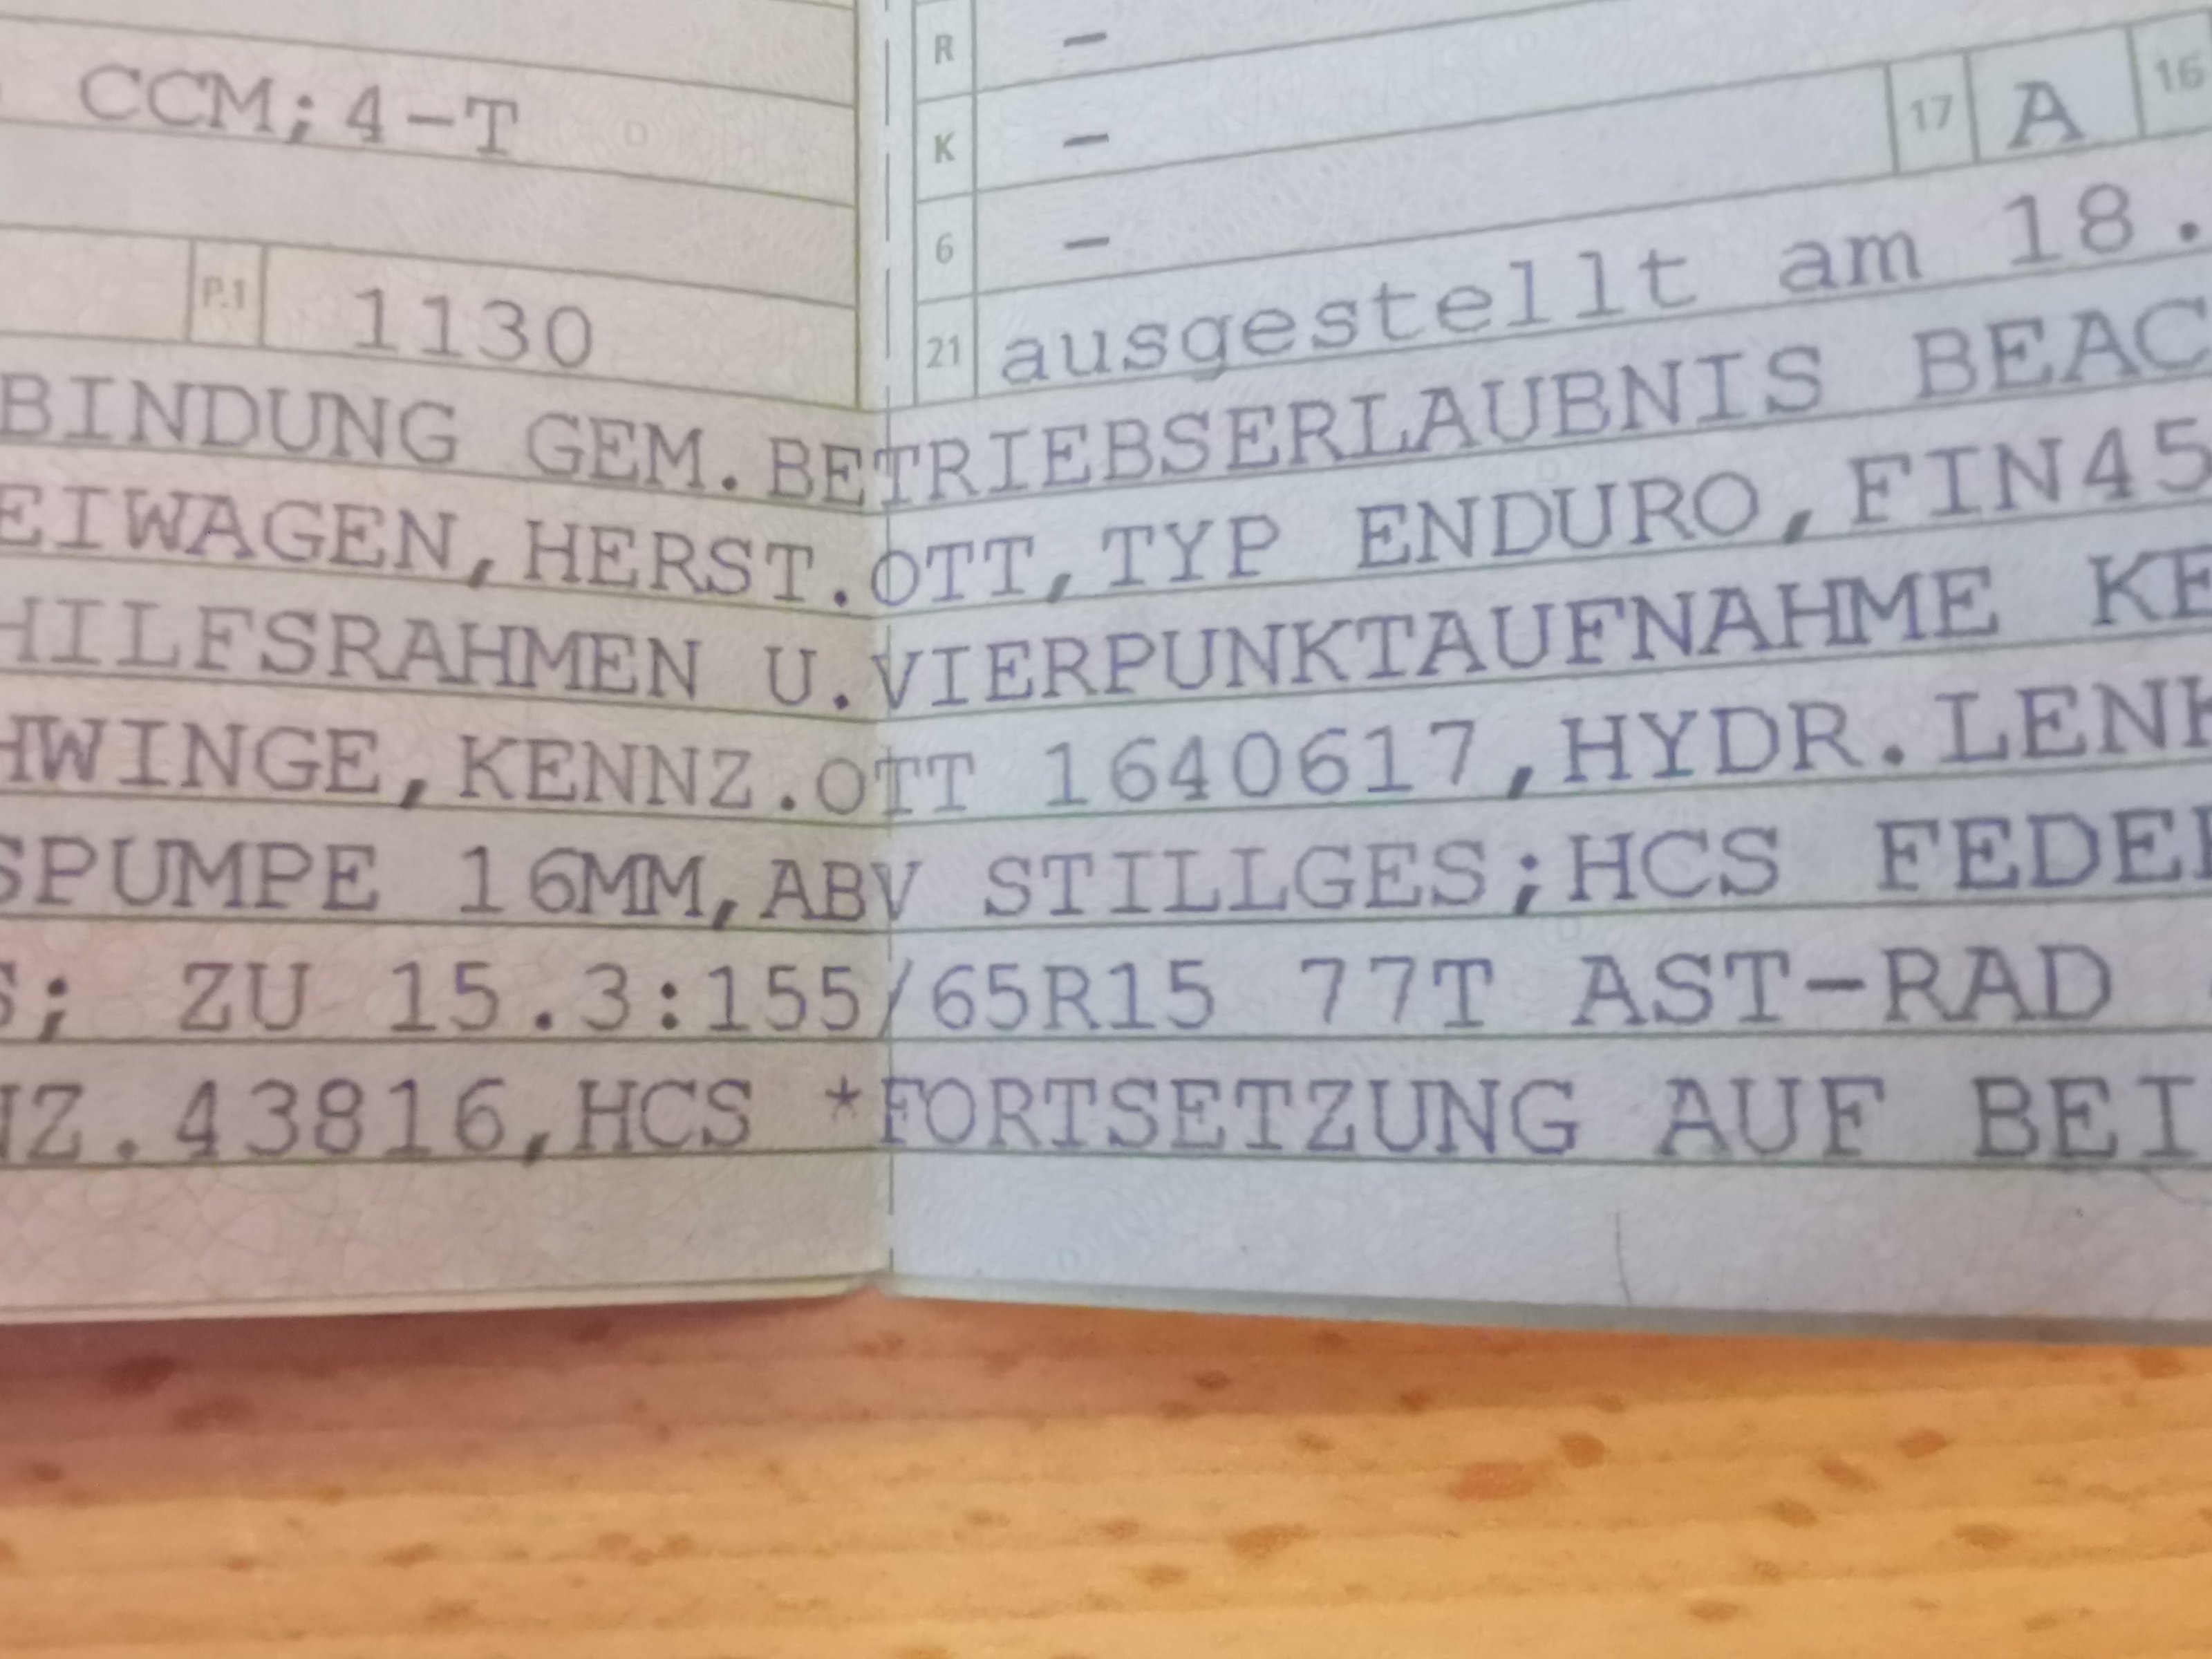 R –
CCM;4-T
K – 17 A 16
6 –
P.1 1130
21 ausgestellt am 18.
BINDUNG GEM.BETRIEBSERLAUBNIS BEAC
EIWAGEN,HERST.OTT,TYP ENDURO,FIN45
HILFSRAHMEN U.VIERPUNKTAUFNAHME KE
HWINGE,KENNZ.OTT 1640617,HYDR.LENK
SPUMPE 16MM,ABV STILLGES;HCS FEDER
S; ZU 15.3:155/65R15 77T AST-RAD
NZ.43816,HCS *FORTSETZUNG AUF BEI